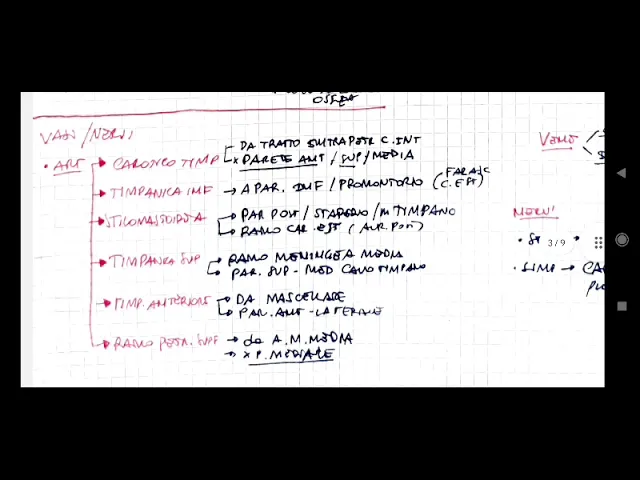 OSSEA
VASI/NERVI
• ART
CAROTICO TIMP
DA TRATTO INTRAPETR C.INT
x PARETE ANT / SUP / MEDIA
TIMPANICA INF → A PAR. INF / PROMONTORIO (FARASC C. EST)
STILOMASTOIDEA
PAR POST / STAPEDIO / M TIMPANO
RAMO CAR. EST (AUR POST)
TIMPANICA SUP
RAMO MENINGEA MEDIA
PAR. SUP - MED CAVO TIMPANO
TIMP. ANTERIORE
DA MASCELLARE
PAR. ANT - LATERALE
RAMO PETR. SUPF
da A.M. MEDIA
x P. MEDIALE
VENE
NERVI
3/9
• SIMP →